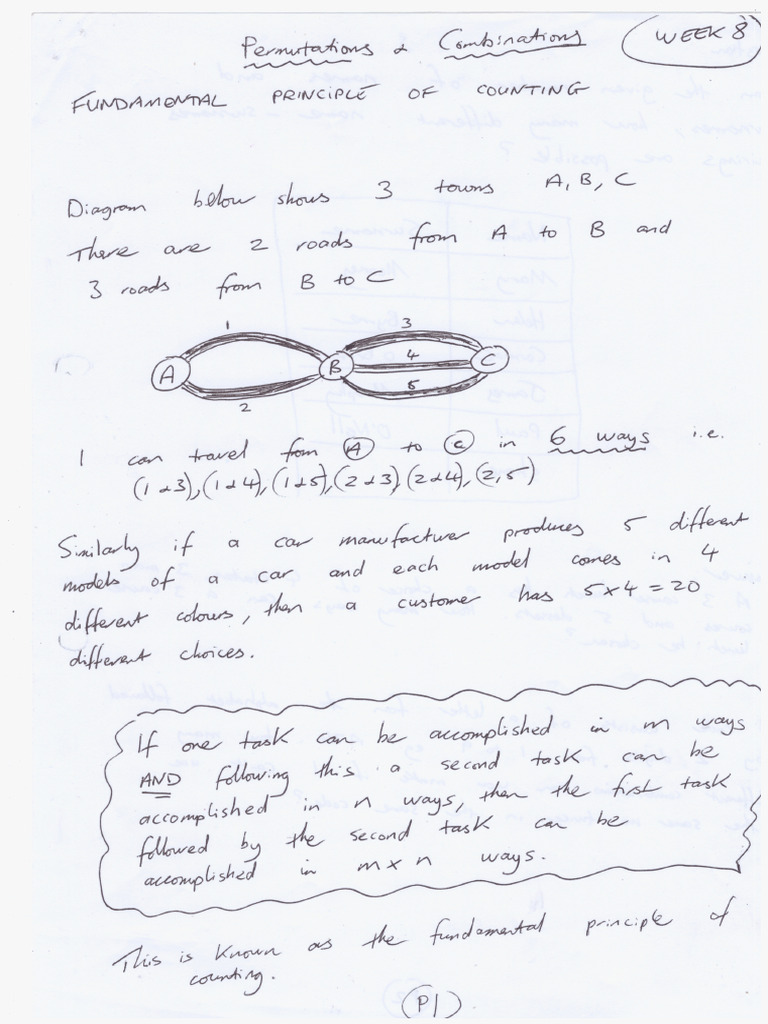 Permutations & Combinations
WEEK 8
FUNDAMENTAL PRINCIPLE OF COUNTING
Diagram below shows 3 towns A, B, C
There are 2 roads from A to B and
3 roads from B to C
1 3
A B 4 C
2 5
I can travel from A to C in 6 ways i.e.
(1 & 3), (1 & 4), (1 & 5), (2 & 3), (2 & 4), (2, 5)
Similarly if a car manufacturer produces 5 different
models of a car and each model comes in 4
different colours, then a customer has 5 x 4 = 20
different choices.
If one task can be accomplished in m ways
AND following this a second task can be
accomplished in n ways, then the first task
followed by the second task can be
accomplished in m x n ways.
This is known as the fundamental principle of
counting.
P1